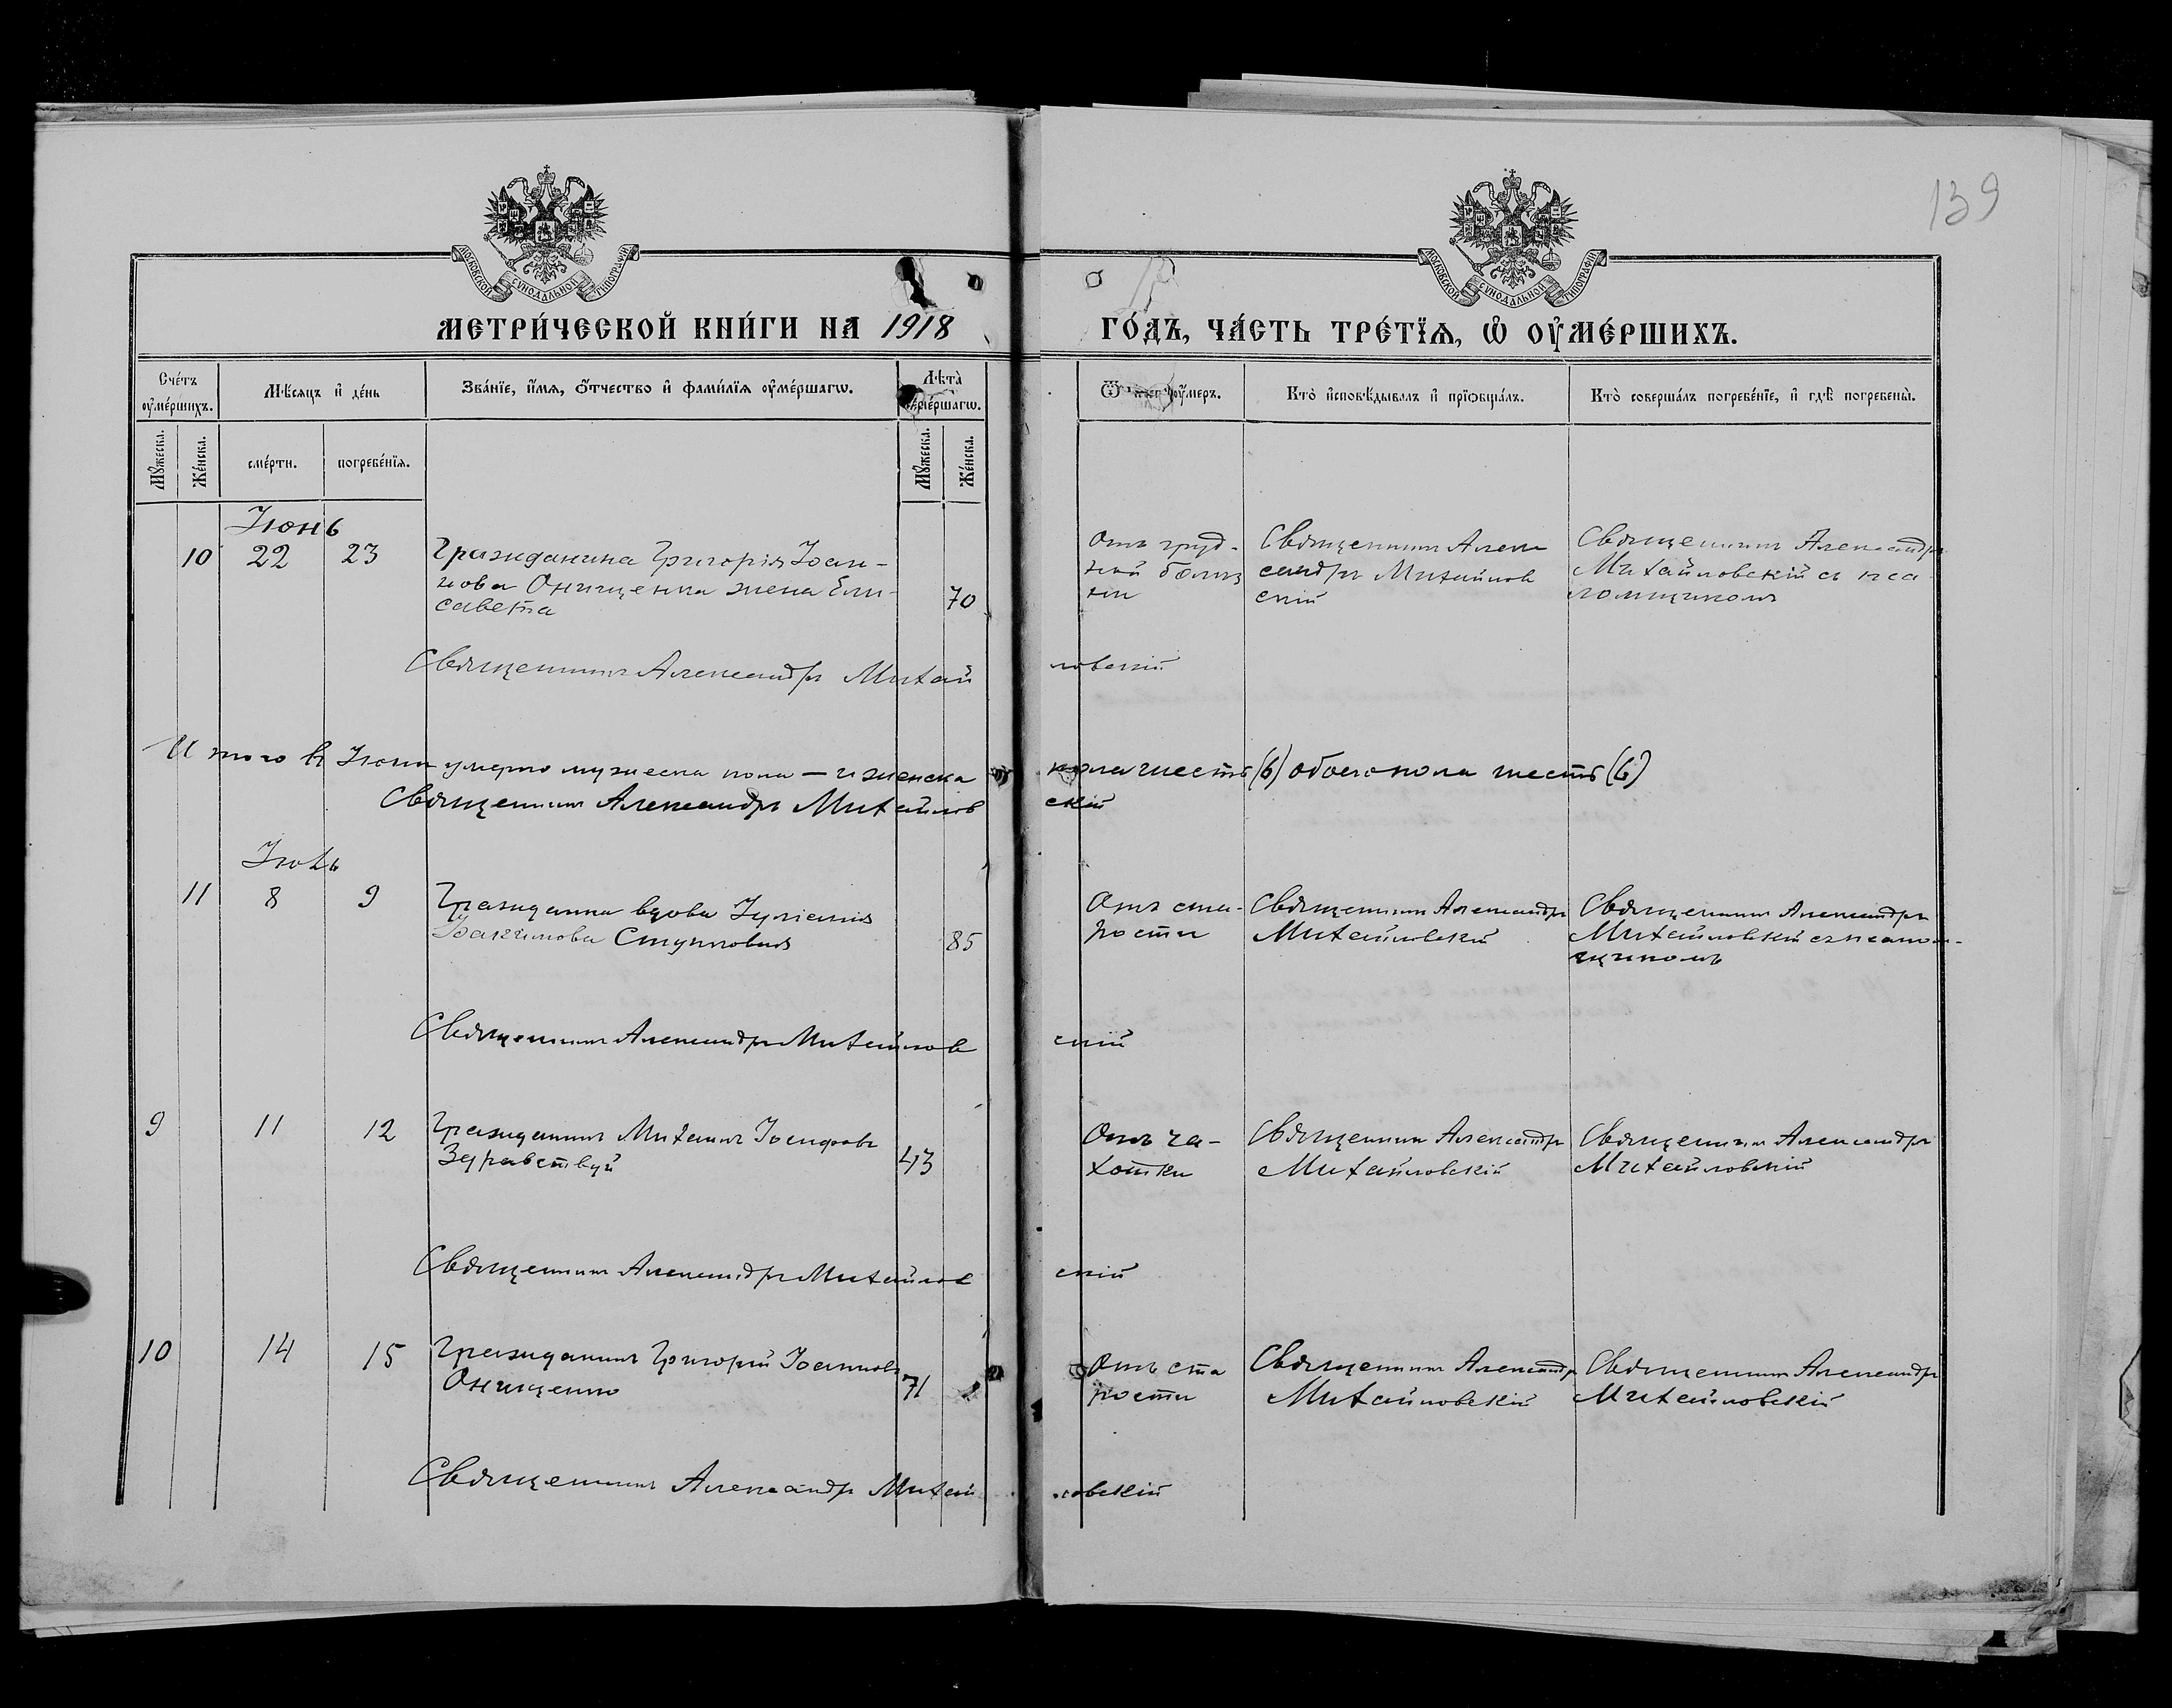 139
МОСКОВСКОЙ СУНОДАЛЬНОЙ ТИПОГРАФІИ
МОСКОВСКОЙ СУНОДАЛЬНОЙ ТИПОГРАФІИ
МЕТРИ́ЧЕСКОЙ КНИ́ГИ НА 1918 ГО́ДЪ, ЧА́СТЬ ТРЕ́ТЇѦ, Ѡ҆ ОУ҆МЕ́РШИХЪ.
Сче́тъ оу҆ме́ршихъ.
Мѣ́сяцъ и҆ де́нь
Зва́нїе, и҆́мѧ, ѻ҆́тчество и҆ фами́лїѧ оу҆ме́ршагѡ.
Лѣ́та оу҆ме́ршагѡ.
Ѿ чегѡ̀ оу҆́меръ.
Кто̀ и҆сповѣ́дывалъ и҆ прїѻбща́лъ.
Кто̀ соверша́лъ погребе́нїе, и҆ гдѣ̀ погребены̀.
Мꙋ́жеска.
Же́нска.
сме́рти.
погребе́нїѧ.
Мꙋ́жеска.
Же́нска.
Іюнь
10 22 23
Гражданина Григорія Іоан-
нова Онищенка жена Ели-
савета
70
Отъ груд-
ной болѣз
ни
Священникъ Алек
сандръ Михайлов
скій
Священникъ Александръ
Михайловскій съ пса
ломщикомъ
Священникъ Александръ Михай ловскій
Итого въ Іюнѣ умерло мужеска пола — и женска пола шесть (6) обоего пола шесть (6)
Священникъ Александръ Михайлов скій
Іюль
11 8 9
Гражданка вдова Іуліанія
Іоакимова Ступковая
85
Отъ ста-
рости
Священникъ Александръ
Михайловскій
Священникъ Александръ
Михайловскій съ псалом-
щикомъ
Священникъ Александръ Михайлов скій
9 11 12
Гражданинъ Михаилъ Іосифовъ
Здравствуй
43
Отъ ча-
хотки
Священникъ Александръ
Михайловскій
Священникъ Александръ
Михайловскій
Священникъ Александръ Михайлов скій
10 14 15
Гражданинъ Григорій Іоанновъ
Онищенко
71
Отъ ста
рости
Священникъ Александръ
Михайловскій
Священникъ Александръ
Михайловскій
Священникъ Александръ Михай ловскій